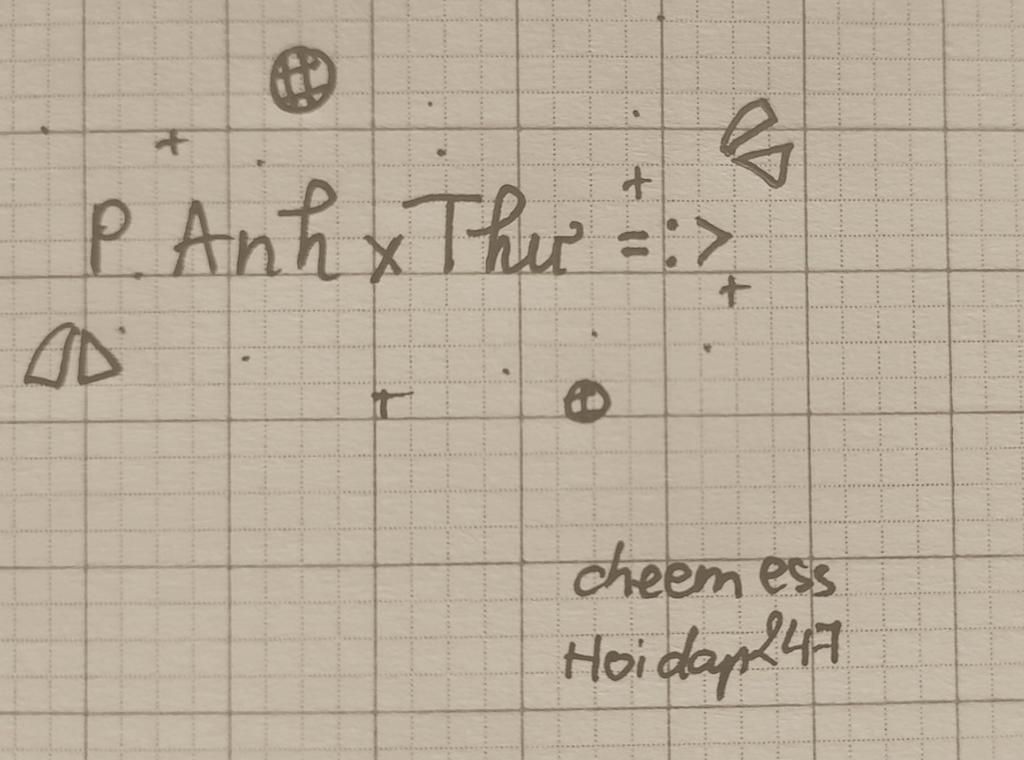 P. Anh x Thư = :>
cheem ess
Hoidap247